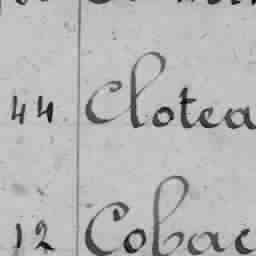 44 Clotea
12 Cobac